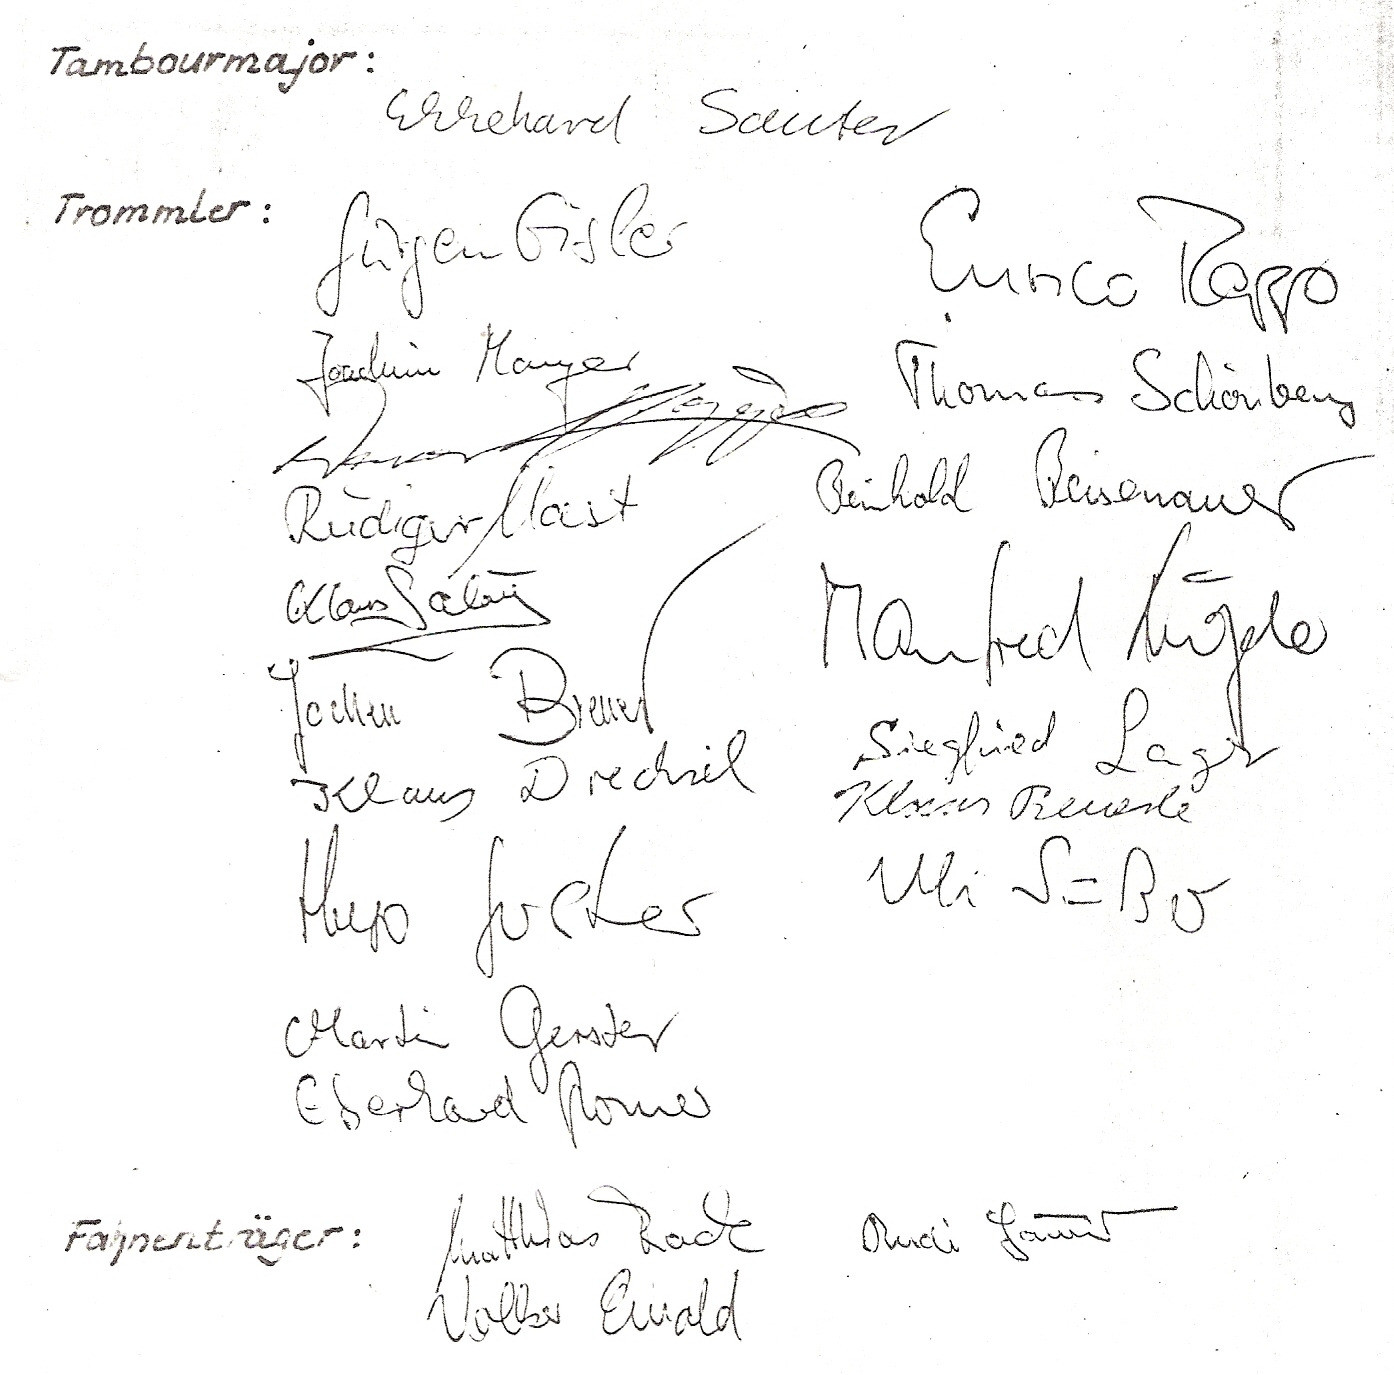 Tambourmajor:
Ekkehard Sauter
Trommler:
Jürgen Eisler
Enrico Rappo
Joachim Mauger
Thomas Schönberg
Rappo
Rüdiger Mast
Reinhold Reisenauer
Klaus
Manfred
Jochen Bremer
Siegfried Lager
Klaus Drechsel
Klaus
Hugo Junker
Uli
Martin Gerster
Eberhard Romer
Fahnenträger:
Matthias Rack
Rudi
Volker Ewald